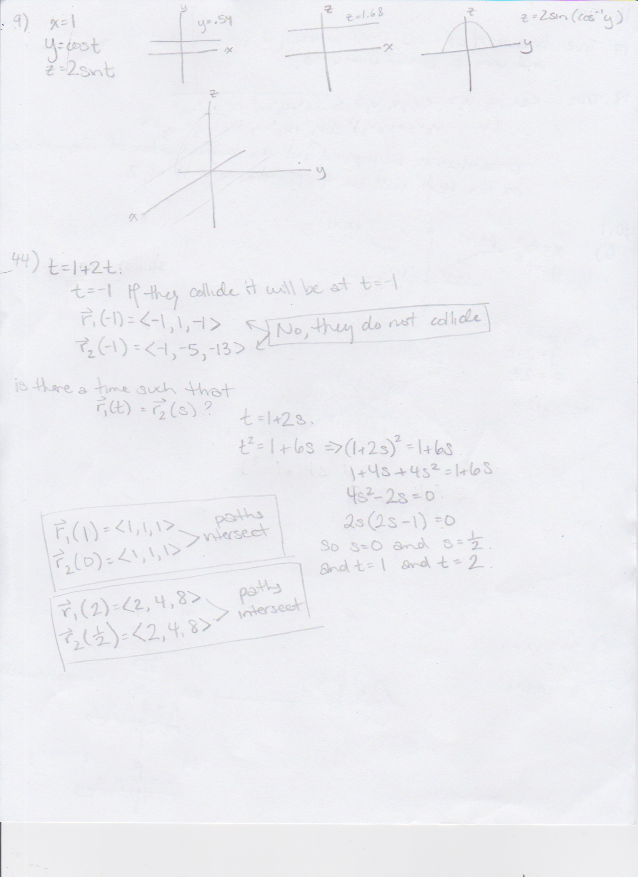 9) x=1
y=cost
z=2sint
y
y=.54
x
z
z=1.68
x
z
z=2sin(cos⁻¹y)
y
z
y
x
44) t=1+2t.
t=-1 If they collide it will be at t=-1
r⃗₁(-1)=<-1,1,-1>
r⃗₂(-1)=<-1,-5,-13>
No, they do not collide
is there a time such that
r⃗₁(t)=r⃗₂(s)?
t=1+2s.
t²=1+6s ⇒(1+2s)²=1+6s
1+4s+4s²=1+6s
4s²-2s=0
2s(2s-1)=0
so s=0 and s=½.
and t=1 and t=2.
r⃗₁(1)=<1,1,1>
r⃗₂(0)=<1,1,1>
paths
intersect
r⃗₁(2)=<2,4,8>
r⃗₂(½)=<2,4,8>
paths
intersect